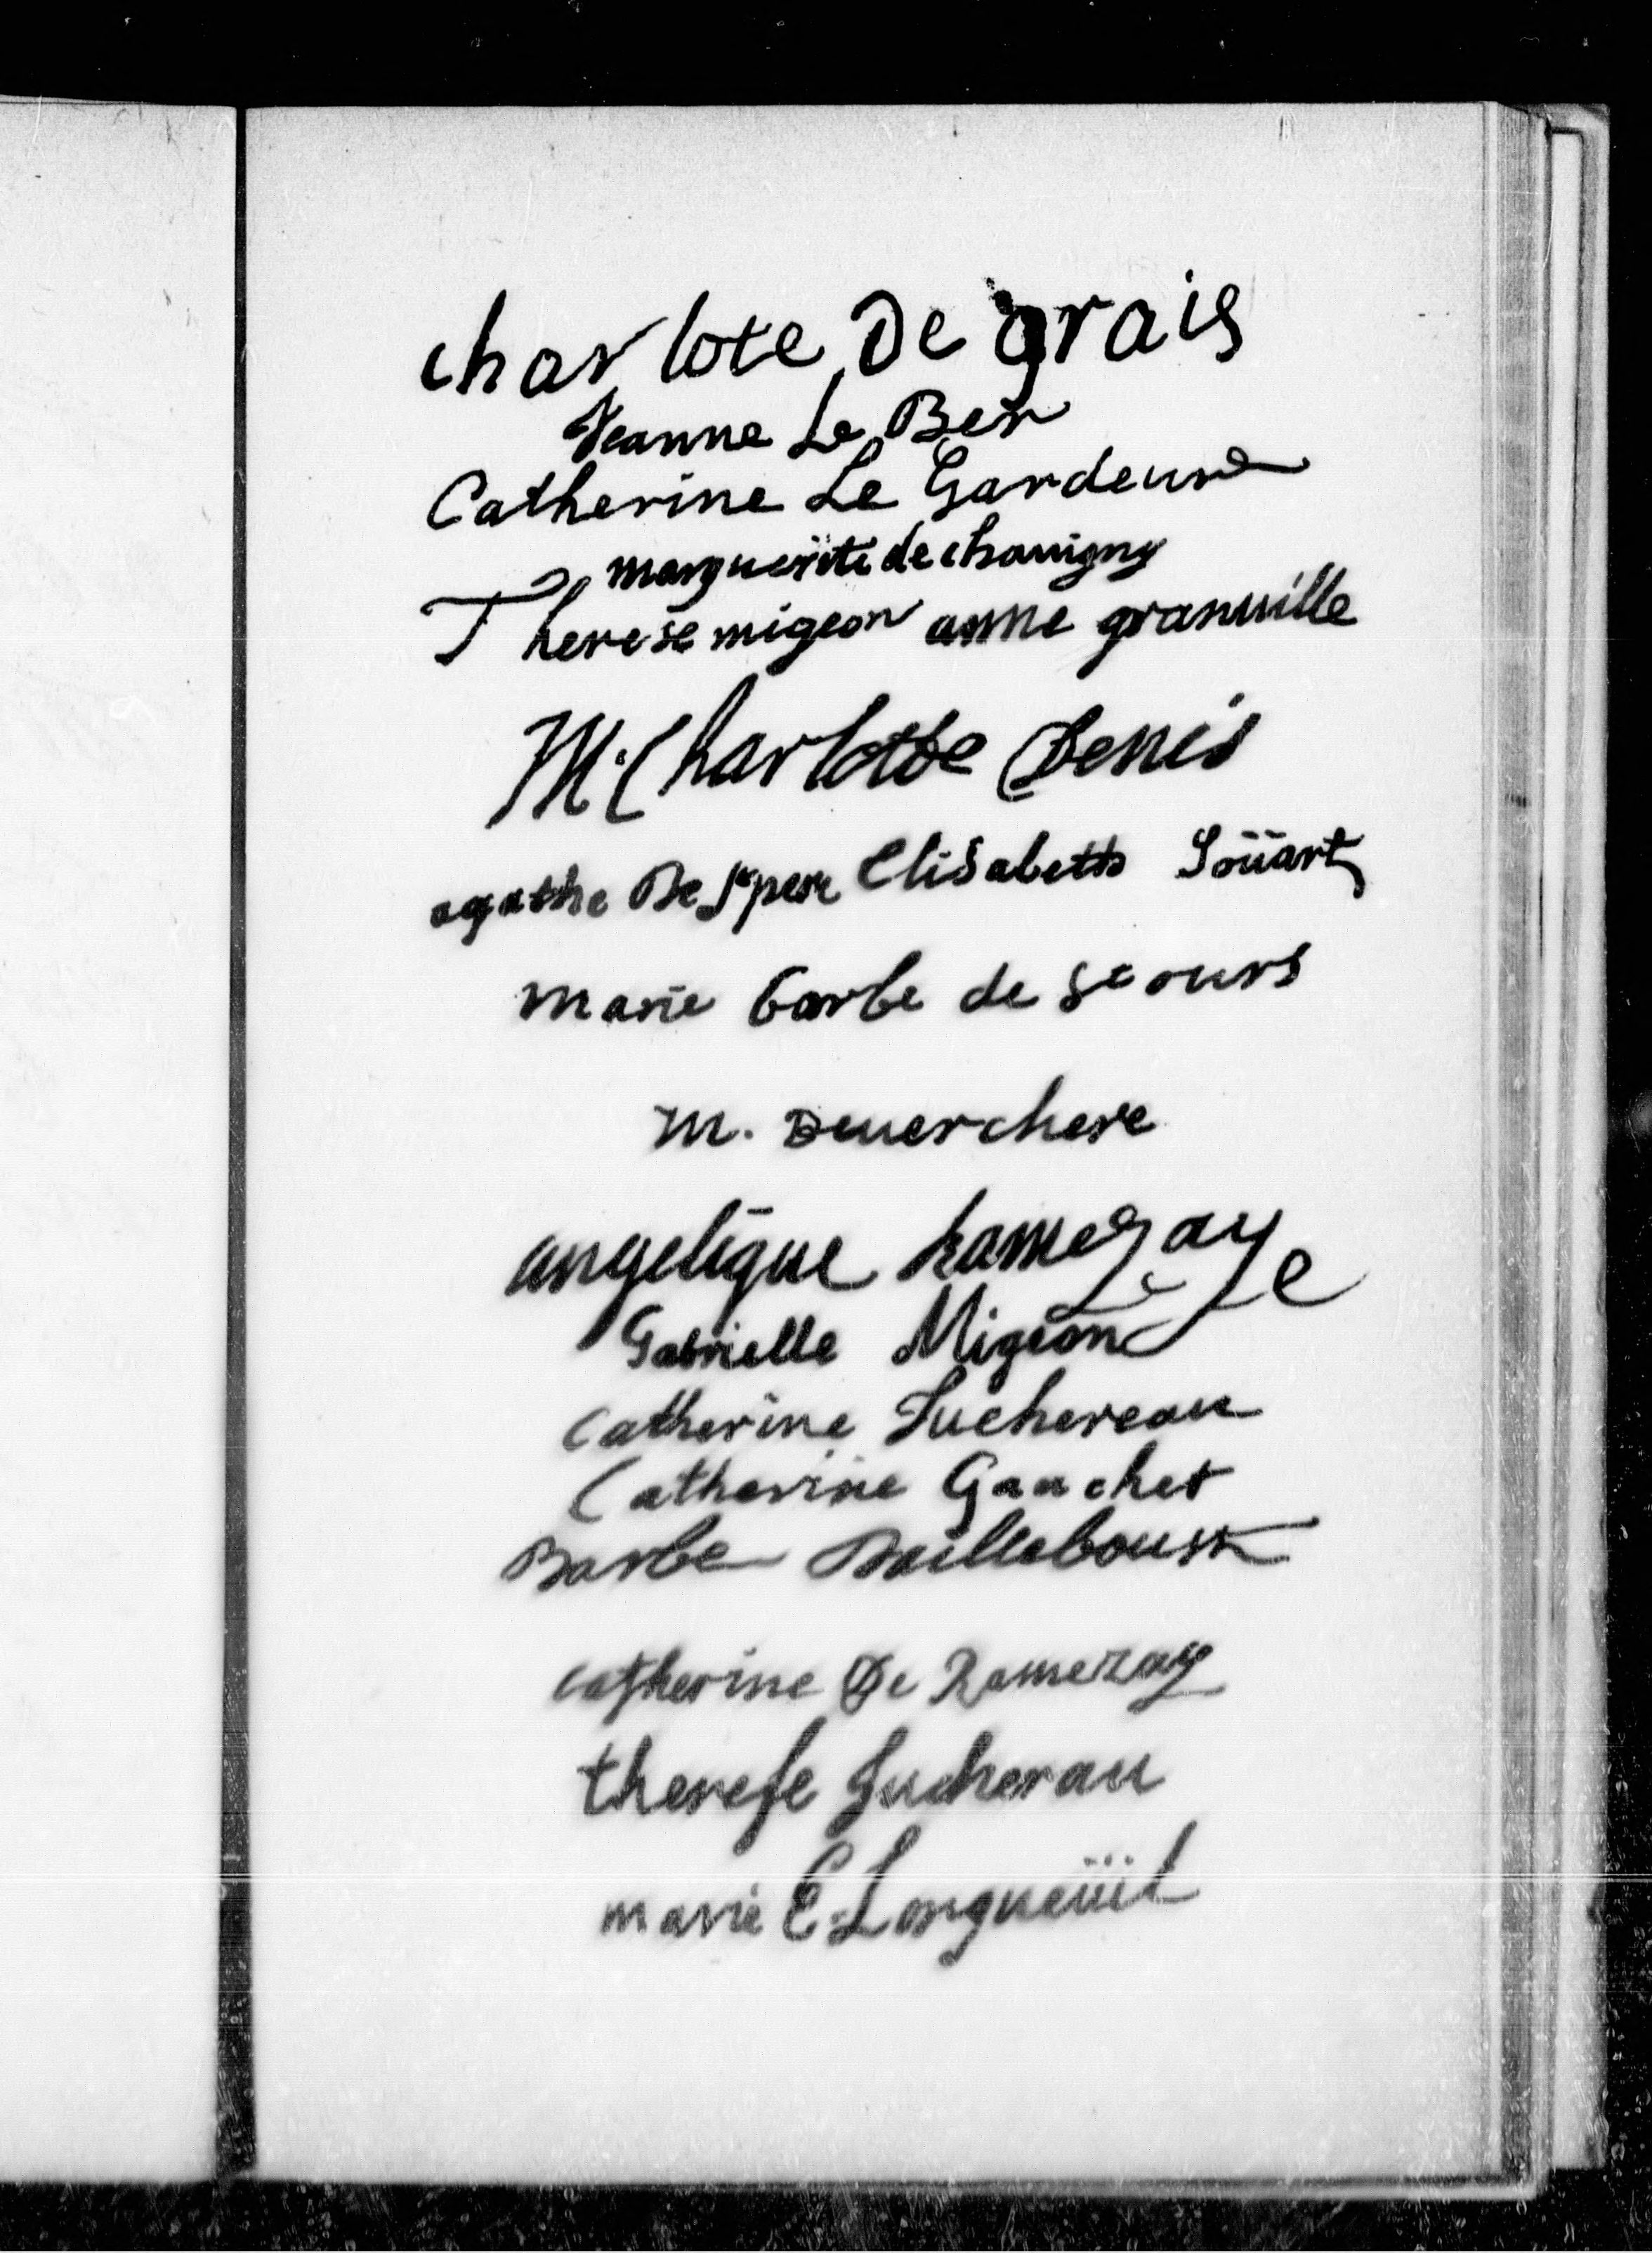 charlote De grais
Jeanne Le Ber
Catherine Le Gardeur
marguerite de chauigny
Therese migeon anne granuille
M. Charlotte Denis
agathe De St pere Elisabeth Soüart
marie barbe de st ours
m. Deuerchere
angelique Ramezay
Gabrielle Migeon
Catherine Juchereau
Catherine Gauchet
Barbe Dailleboust
catherine De Ramezay
therese Jucherau
marie E. Longueüil